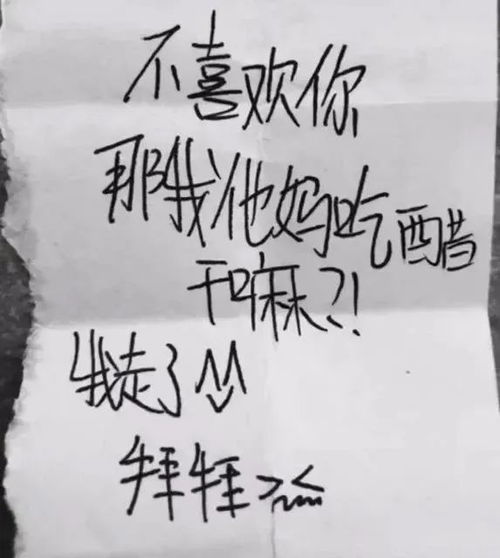 不喜欢你
那我他妈吃醋
干嘛?!
我走了
拜拜